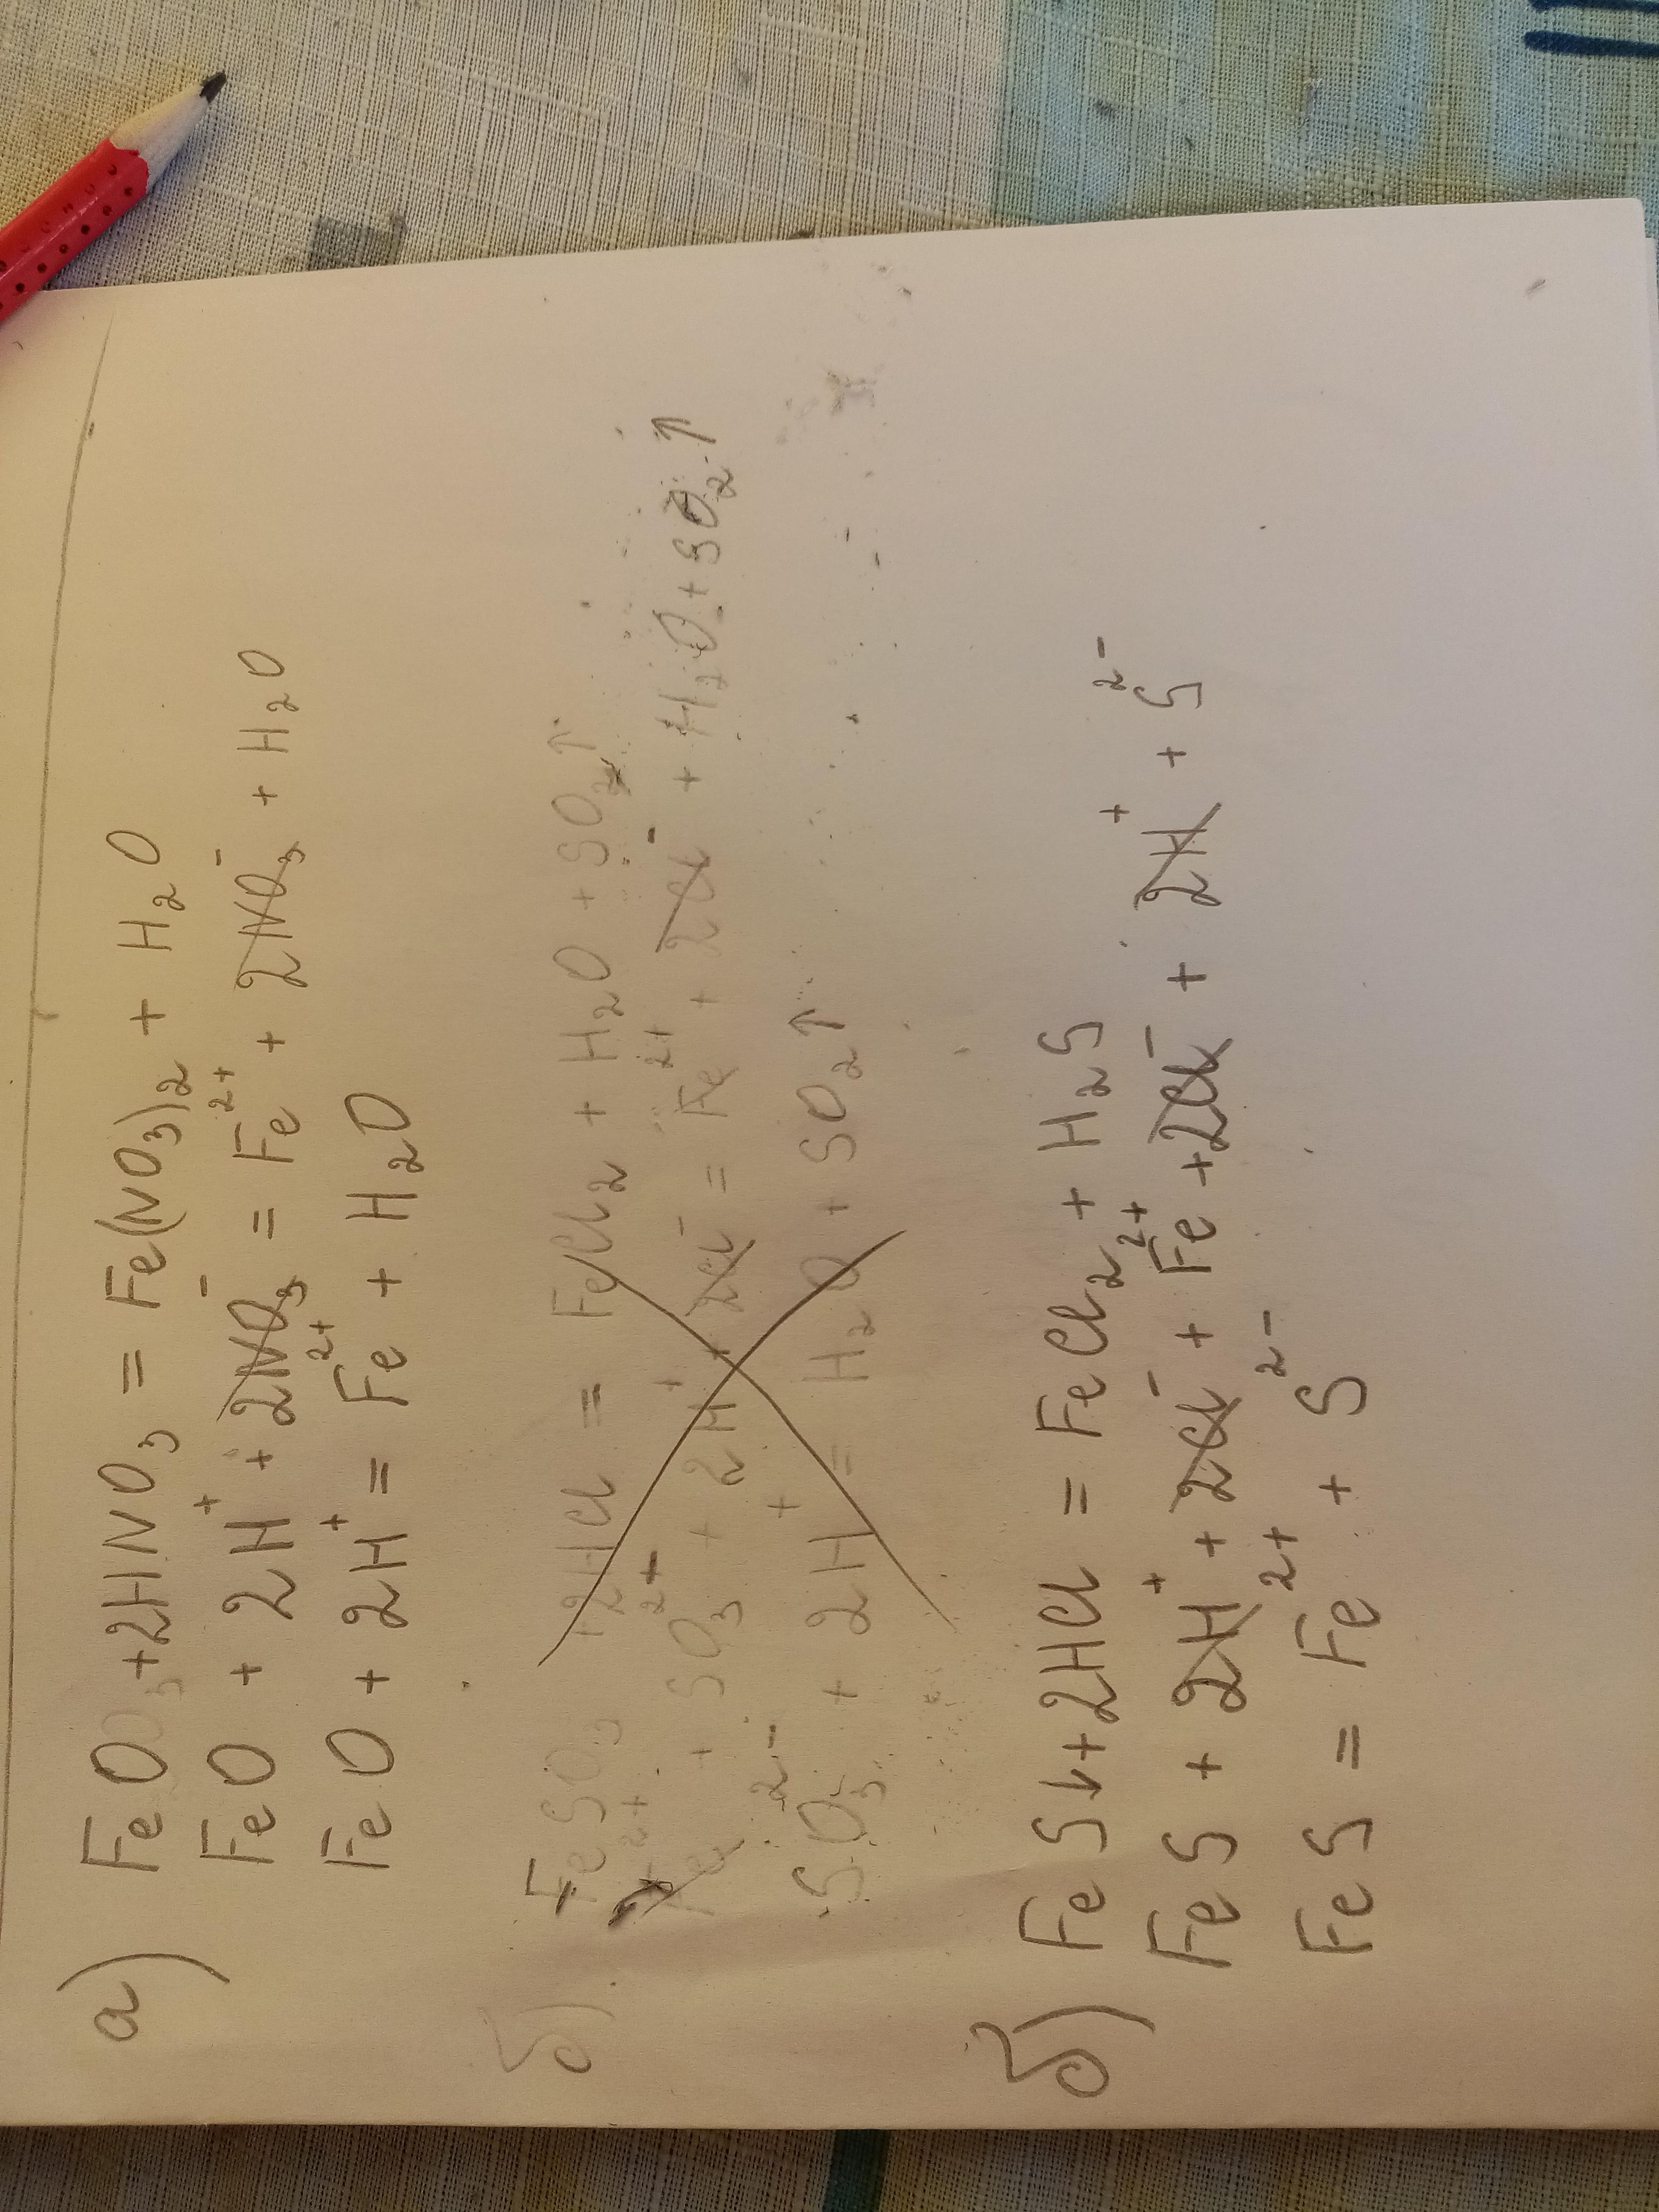 а) FeO+2HNO₃ = Fe(NO₃)₂ + H₂O
FeO + 2H⁺ + 2NO₃⁻ = Fe²⁺ + 2NO₃⁻ + H₂O
FeO + 2H⁺ = Fe²⁺ + H₂O
б) FeSO₃ + 2HCl = FeCl₂ + H₂O + SO₂↑
Fe²⁺ + SO₃²⁻ + 2H⁺ + 2Cl⁻ = Fe²⁺ + 2Cl⁻ + H₂O + SO₂↑
SO₃²⁻ + 2H⁺ = H₂O + SO₂↑
б) FeS↓+2HCl = FeCl₂ + H₂S
FeS + 2H⁺ + 2Cl⁻ + Fe²⁺ + 2Cl⁻ + 2H⁺ + S²⁻
FeS = Fe²⁺ + S²⁻